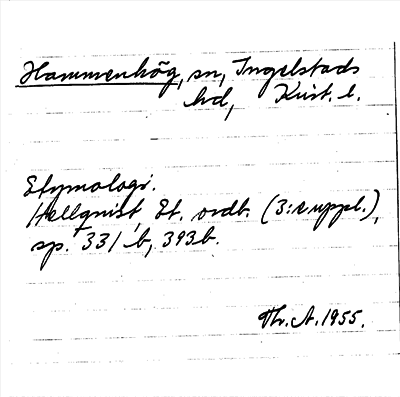 Hammenhög, sn, Ingelstads
hd, Krist. l.
Etymologi.
Hellquist, Et. ordb. (3:e uppl.),
sp. 331 b, 393b.
Th. A. 1955.